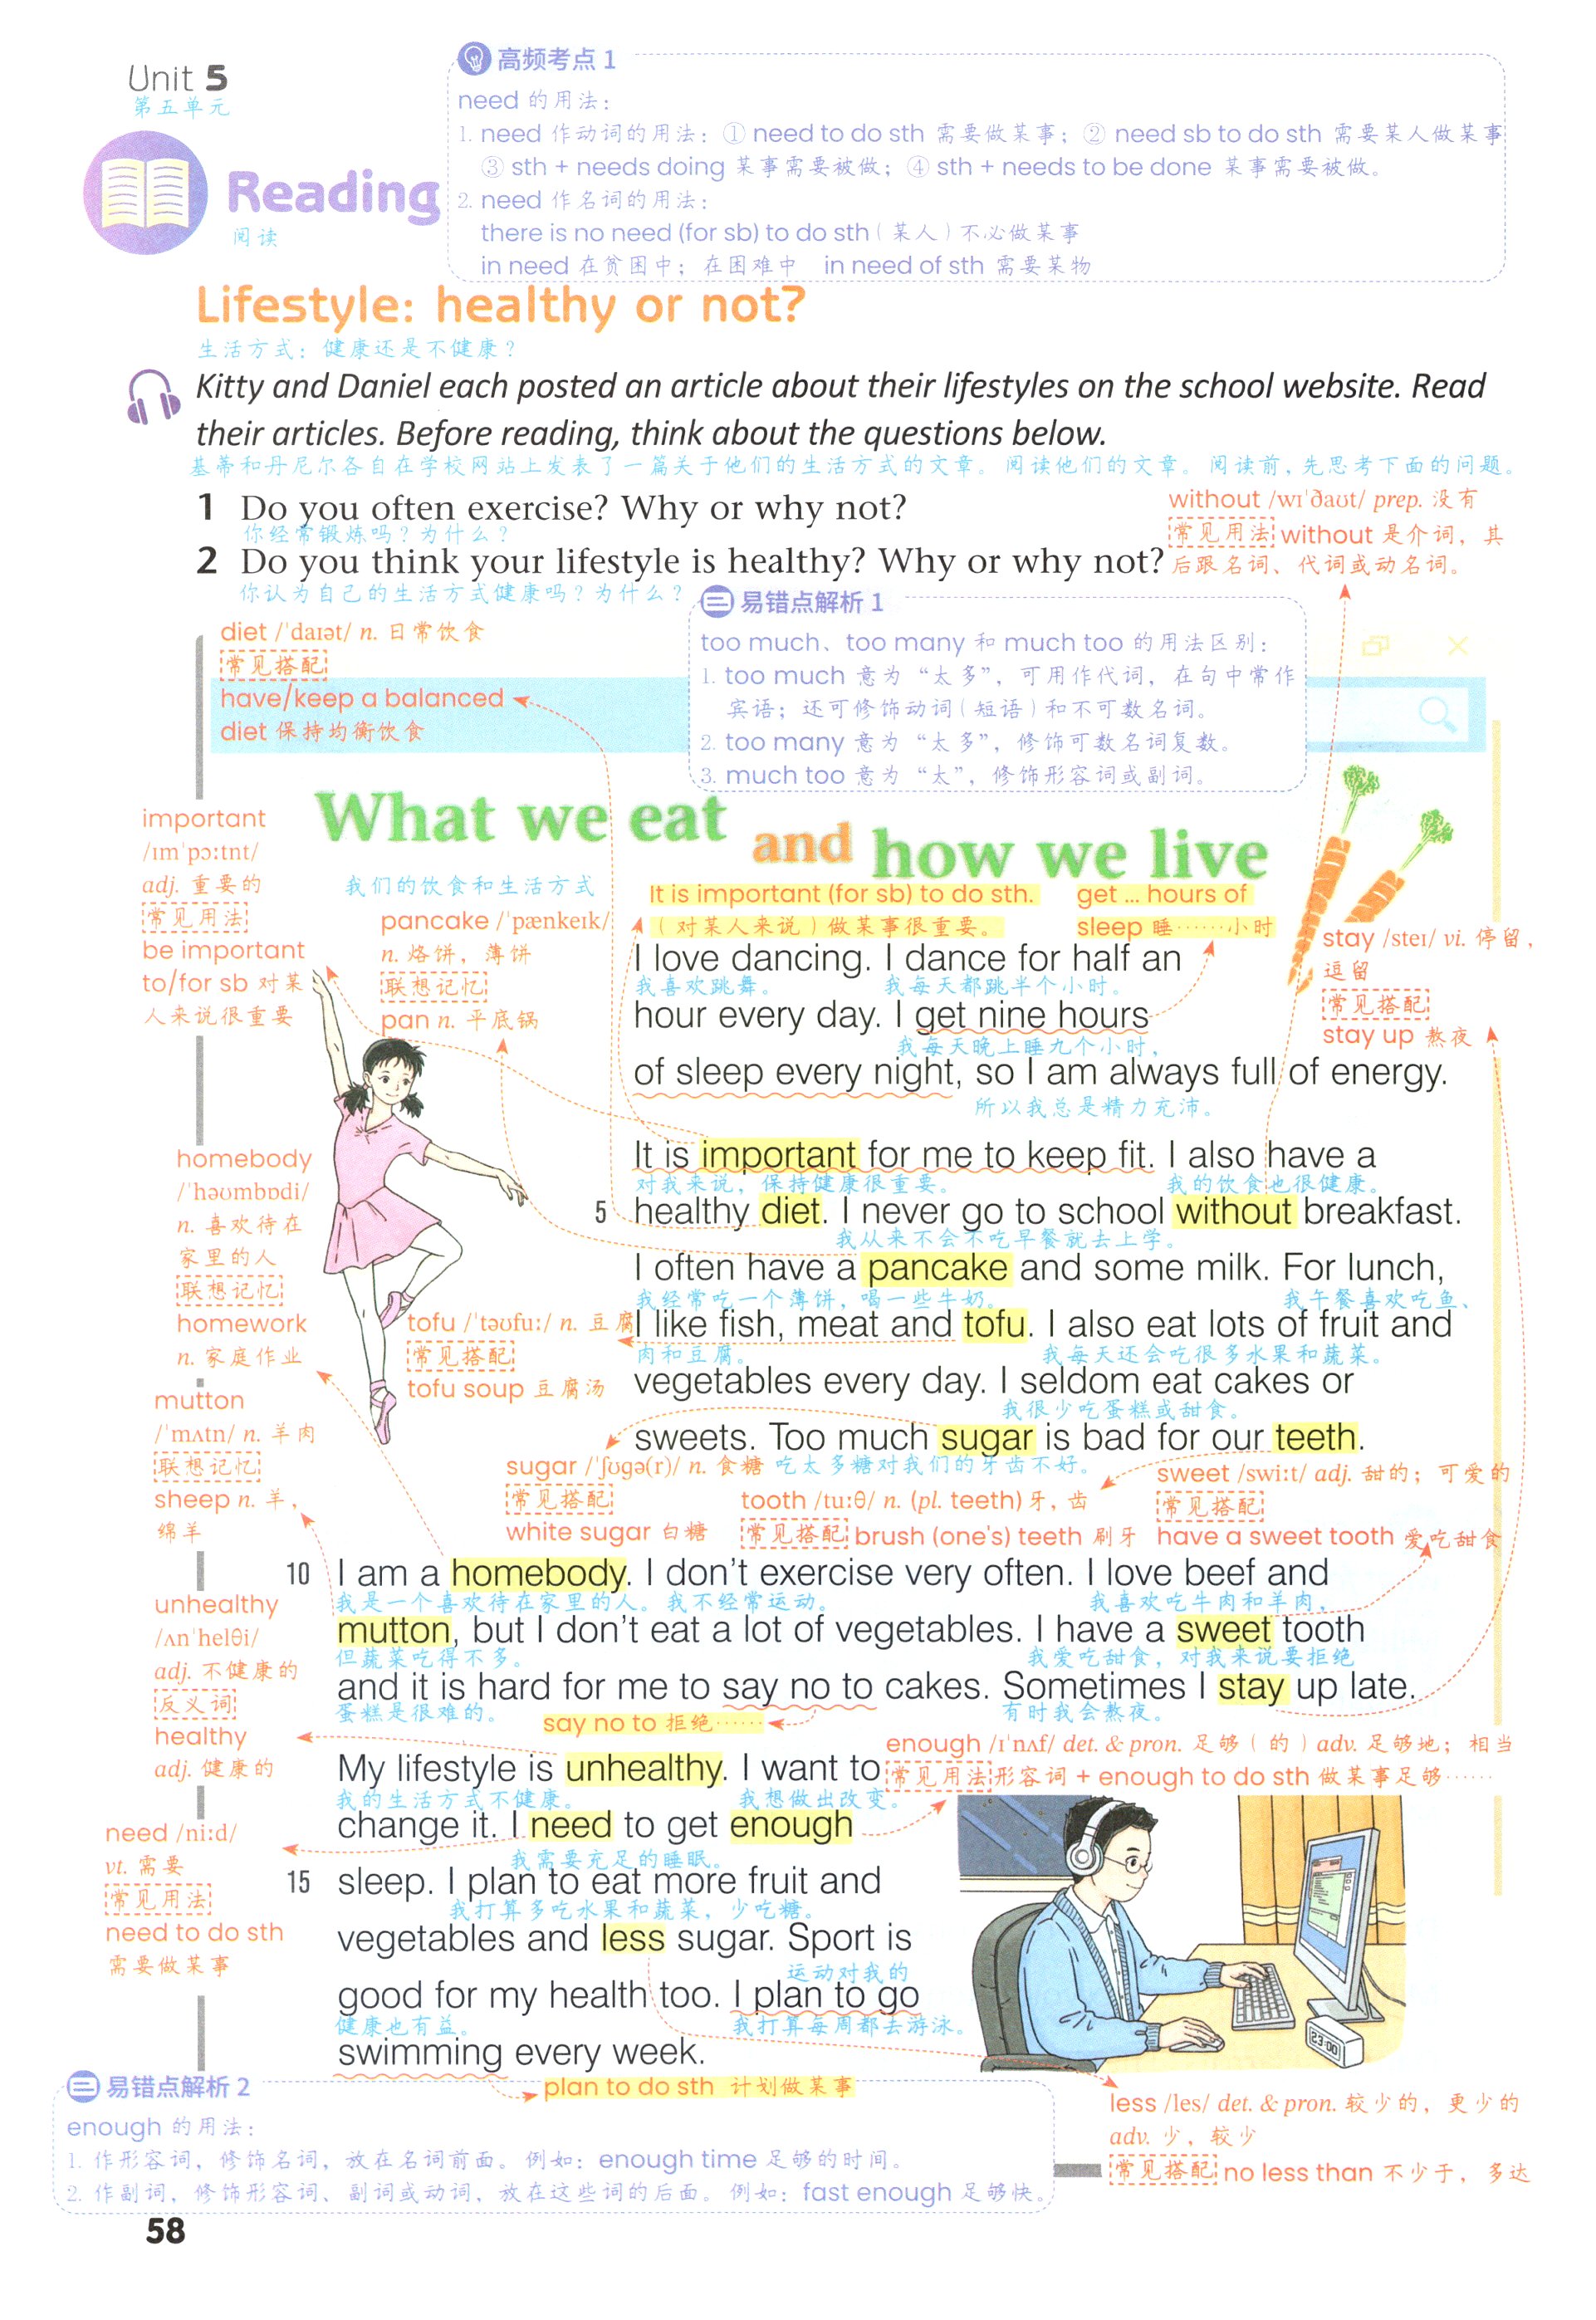 Unit 5
第五单元
Reading
阅读
高频考点 1
need 的用法：
1. need 作动词的用法：① need to do sth 需要做某事；② need sb to do sth 需要某人做某事
③ sth + needs doing 某事需要被做；④ sth + needs to be done 某事需要被做。
2. need 作名词的用法：
there is no need (for sb) to do sth（某人）不必做某事
in need 在贫困中；在困难中 in need of sth 需要某物
Lifestyle: healthy or not?
生活方式：健康还是不健康？
Kitty and Daniel each posted an article about their lifestyles on the school website. Read
their articles. Before reading, think about the questions below.
基蒂和丹尼尔各自在学校网站上发表了一篇关于他们的生活方式的文章。阅读他们的文章。阅读前，先思考下面的问题。
1 Do you often exercise? Why or why not?
你经常锻炼吗？为什么？
2 Do you think your lifestyle is healthy? Why or why not?
你认为自己的生活方式健康吗？为什么？
without /wɪˈðaʊt/ prep. 没有
常见用法 without 是介词，其
后跟名词、代词或动名词。
易错点解析 1
too much、too many 和 much too 的用法区别：
1. too much 意为“太多”，可用作代词，在句中常作
宾语；还可修饰动词（短语）和不可数名词。
2. too many 意为“太多”，修饰可数名词复数。
3. much too 意为“太”，修饰形容词或副词。
diet /ˈdaɪət/ n. 日常饮食
常见搭配
have/keep a balanced
diet 保持均衡饮食
What we eat and how we live
我们的饮食和生活方式
important
/ɪmˈpɔːtnt/
adj. 重要的
常见用法
be important
to/for sb 对某
人来说很重要
pancake /ˈpænkeɪk/
n. 烙饼，薄饼
联想记忆
pan n. 平底锅
It is important (for sb) to do sth.
（对某人来说）做某事很重要。
get ... hours of
sleep 睡……小时
stay /steɪ/ vi. 停留，
逗留
常见搭配
stay up 熬夜
I love dancing. I dance for half an
我喜欢跳舞。 我每天都跳半个小时。
hour every day. I get nine hours
我每天晚上睡九个小时，
of sleep every night, so I am always full of energy.
所以我总是精力充沛。
It is important for me to keep fit. I also have a
对我来说，保持健康很重要。 我的饮食也很健康。
5 healthy diet. I never go to school without breakfast.
我从来不会不吃早餐就去上学。
I often have a pancake and some milk. For lunch,
我经常吃一个薄饼，喝一些牛奶。 我午餐喜欢吃鱼、
I like fish, meat and tofu. I also eat lots of fruit and
肉和豆腐。 我每天还会吃很多水果和蔬菜。
vegetables every day. I seldom eat cakes or
我很少吃蛋糕或甜食。
sweets. Too much sugar is bad for our teeth.
吃太多糖对我们的牙齿不好。
homebody
/ˈhəʊmbɒdi/
n. 喜欢待在
家里的人
联想记忆
homework
n. 家庭作业
tofu /ˈtəʊfuː/ n. 豆腐
常见搭配
tofu soup 豆腐汤
mutton
/ˈmʌtn/ n. 羊肉
联想记忆
sheep n. 羊，
绵羊
sugar /ˈʃʊɡə(r)/ n. 食糖
常见搭配
white sugar 白糖
tooth /tuːθ/ n. (pl. teeth) 牙，齿
常见搭配 brush (one's) teeth 刷牙
sweet /swiːt/ adj. 甜的；可爱的
常见搭配
have a sweet tooth 爱吃甜食
10 I am a homebody. I don't exercise very often. I love beef and
我是一个喜欢待在家里的人。我不经常运动。 我喜欢吃牛肉和羊肉，
mutton, but I don't eat a lot of vegetables. I have a sweet tooth
但蔬菜吃得不多。 我爱吃甜食，对我来说要拒绝
and it is hard for me to say no to cakes. Sometimes I stay up late.
蛋糕是很难的。 有时我会熬夜。
say no to 拒绝……
unhealthy
/ʌnˈhelθi/
adj. 不健康的
反义词
healthy
adj. 健康的
enough /ɪˈnʌf/ det. & pron. 足够（的）adv. 足够地；相当
常见用法 形容词 + enough to do sth 做某事足够……
My lifestyle is unhealthy. I want to
我的生活方式不健康。 我想做出改变。
change it. I need to get enough
我需要充足的睡眠。
15 sleep. I plan to eat more fruit and
我打算多吃水果和蔬菜，少吃糖。
vegetables and less sugar. Sport is
运动对我的
good for my health too. I plan to go
健康也有益。 我打算每周都去游泳。
swimming every week.
plan to do sth 计划做某事
need /niːd/
vt. 需要
常见用法
need to do sth
需要做某事
23:00
易错点解析 2
enough 的用法：
1. 作形容词，修饰名词，放在名词前面。例如：enough time 足够的时间。
2. 作副词，修饰形容词、副词或动词，放在这些词的后面。例如：fast enough 足够快。
less /les/ det. & pron. 较少的，更少的
adv. 少，较少
常见搭配 no less than 不少于，多达
58